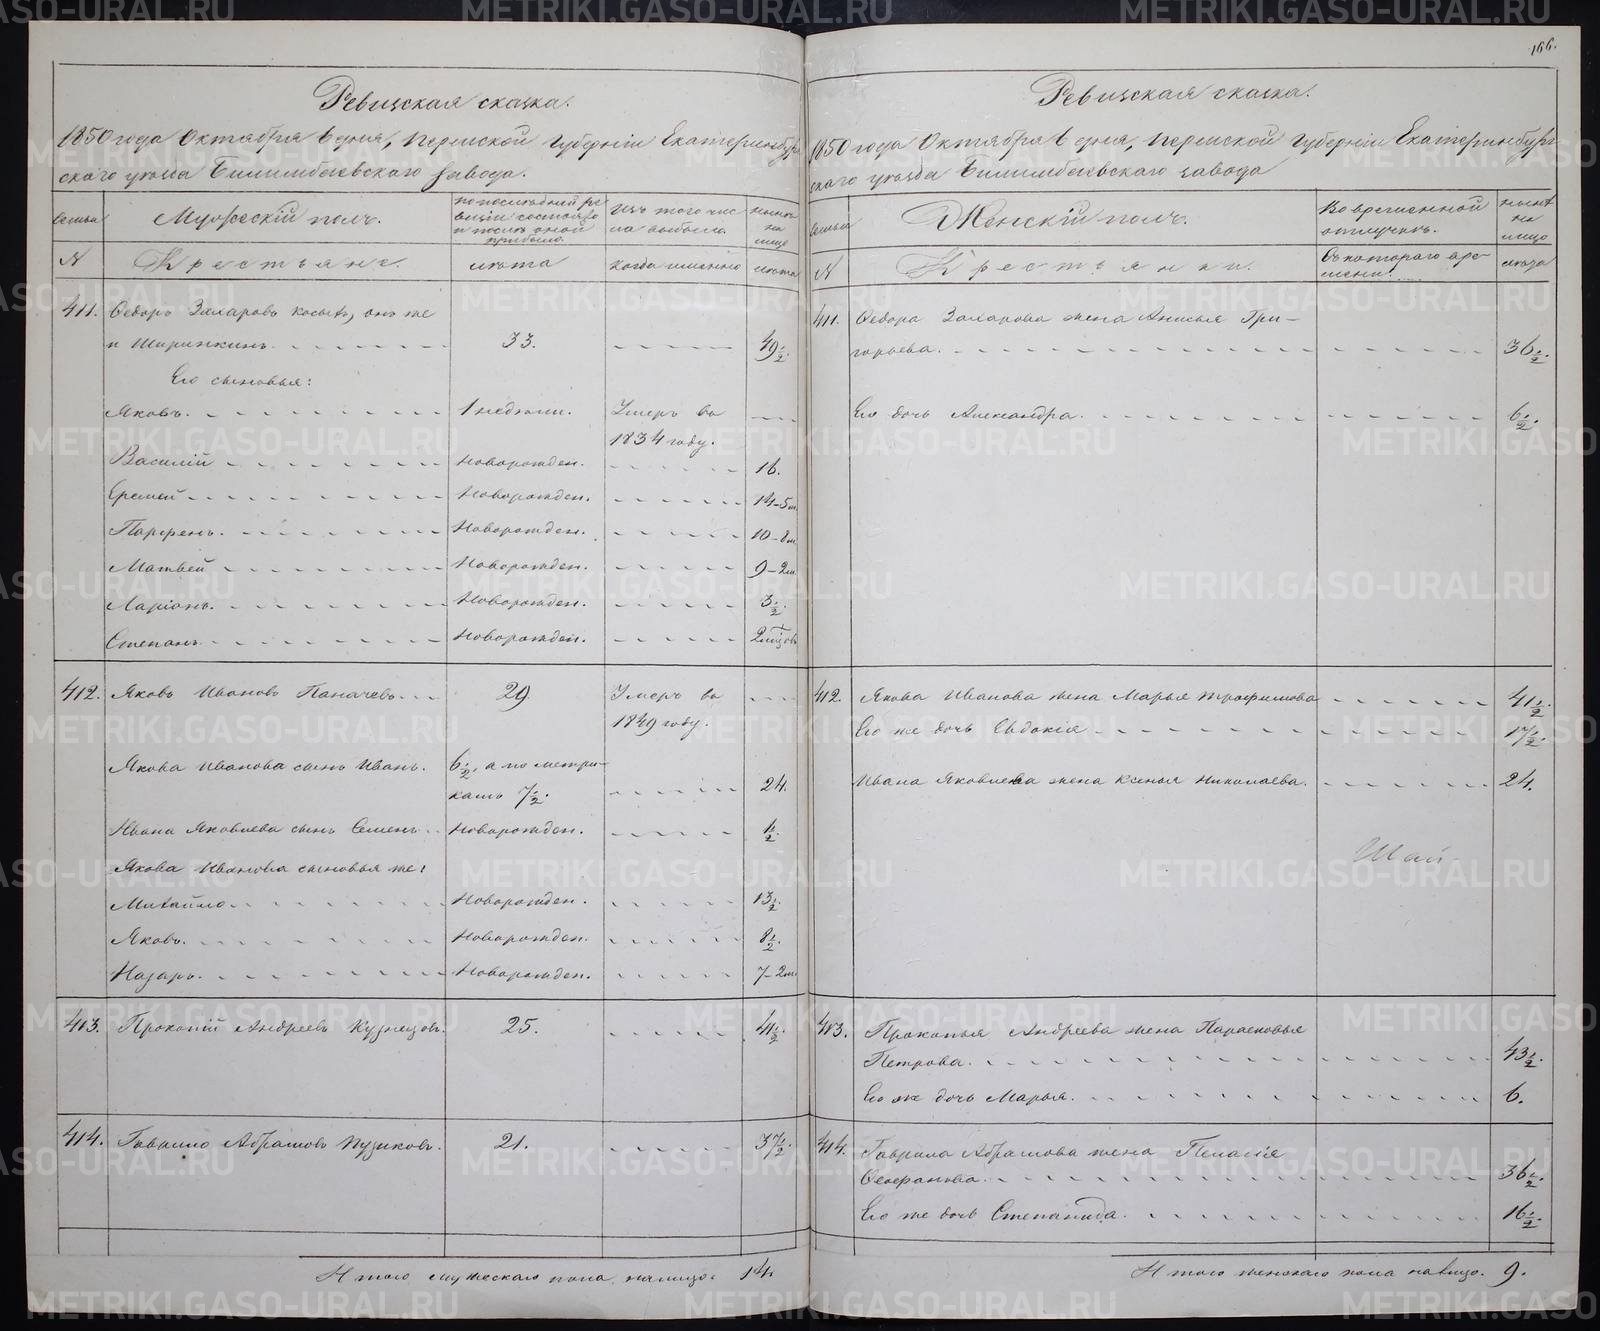 166.
Ревизская сказка.
1850 года Октября 6 дня, Пермской Губерніи Екатеринбург
скаго уѣзда Билимбаевскаго завода.
семьи
Мужескій полъ.
по послѣдней ре
визіи состояло
и послѣ оной
прибыло.
изъ того чис
ла выбыло.
нынѣ
на
лицо
№
Крестьяне.
лѣта
когда именно
лѣта
411.
Ѳедоръ Захаровъ Косыхъ, онъ же
и Ширинкинъ.
33.
49 1/2.
Его сыновья:
Яковъ.
1 недѣли.
Умеръ въ
1834 году.
Василій
Новорожден.
16.
Еремей
Новорожден.
14-5 м.
Парфенъ.
Новорожден.
10-8 м.
Матвей
Новорожден.
9-2 м.
Ларіонъ.
Новорожден.
3 1/2.
Степанъ
Новорожден.
2 мѣсцовъ
412.
Яковъ Ивановъ Паначевъ.
29.
Умеръ въ
1849 году.
Якова Иванова сынъ Иванъ.
6 1/2, а по метри-
камъ 7 1/2.
24.
Ивана Яковлева сынъ Семенъ.
Новорожден.
1/2.
Якова Иванова сыновья же:
Михайло.
Новорожден.
13 1/2.
Яковъ.
Новорожден.
8 1/2.
Назаръ.
Новорожден.
7-2 м.
413.
Прокопій Андреевъ Кузнецовъ.
25.
41 1/2.
414.
Гаврило Абрамовъ Пузиковъ.
21.
37 1/2.
Итого мужескаго пола налицо.
14.
Ревизская сказка.
1850 года Октября 6 дня, Пермской Губерніи Екатеринбург
скаго уѣзда Билимбаевскаго завода
семьи
Женскій полъ.
Во временной
отлучкѣ.
нынѣ
на
лицо
№
Крестьянки.
Съ котораго вре-
мени.
лѣта
411.
Ѳедора Захарова жена Анисья Гри-
горьева.
36 1/2.
Его дочь Александра.
6 1/2.
412.
Якова Иванова жена Марья Трофимова
41 1/2.
Его же дочь Евдокія
17 1/2.
Ивана Яковлева жена Ксенья Николаева.
24.
413.
Прокопья Андреева жена Парасковья
Петрова.
43 1/2.
Его же дочь Марья.
6.
414.
Гаврила Абрамова жена Пелагія
36 1/2.
Его же дочь Степанида.
16 1/2.
Итого женскаго пола налицо.
9.
METRIKI.GASO-URAL.RU